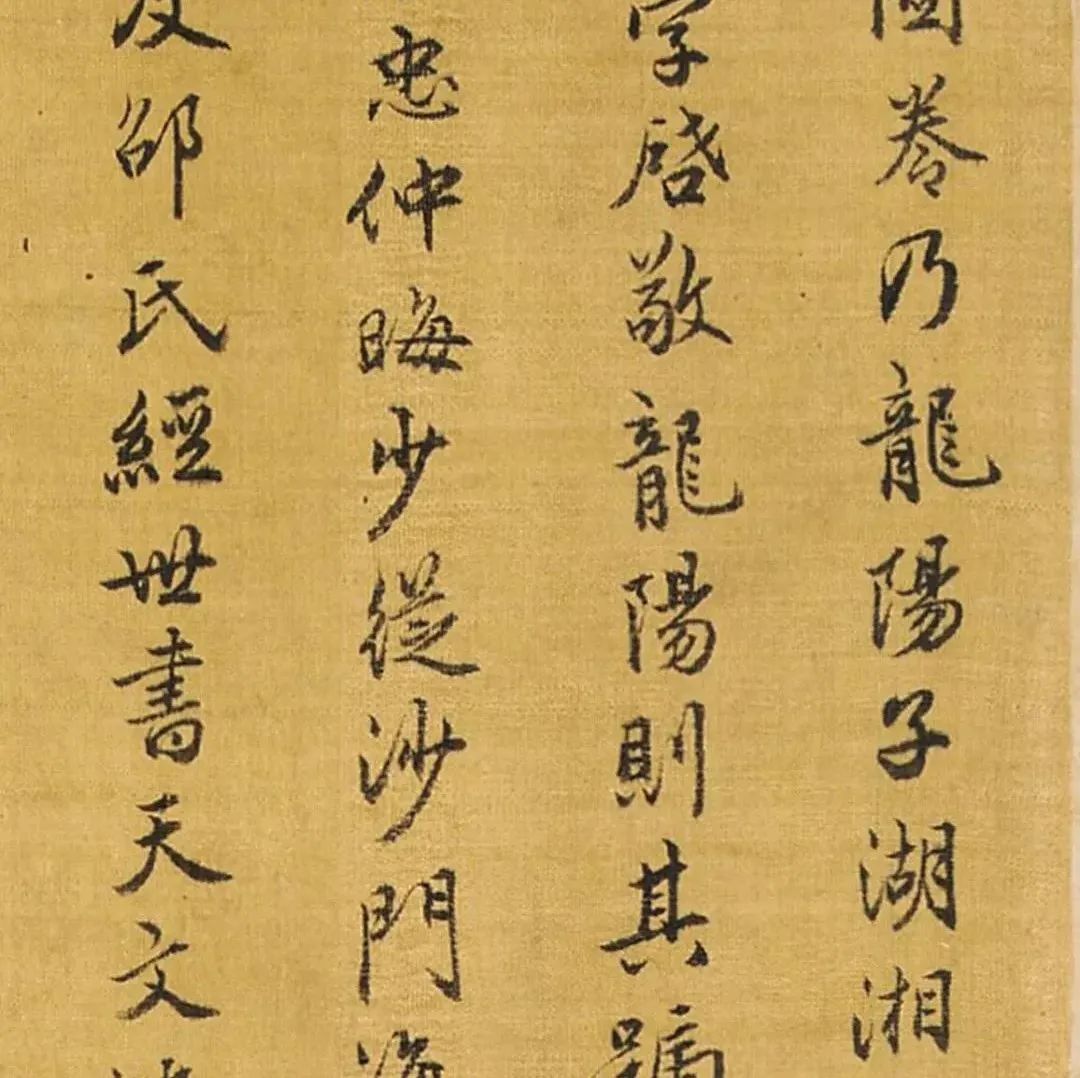 圖卷乃龍陽子湖湘
字啓敬龍陽則其號
忠仲晦少從沙門海
及邵氏經世書天文